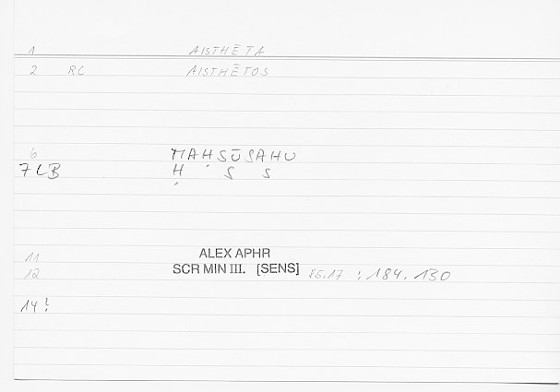 1 AISTHĒTA
2 RC AISTHĒTOS
6 MAHSŪSAHU
7 LB H S S
11 ALEX APHR
12 SCR MIN III. [SENS] 85.17 : 184.130
14?